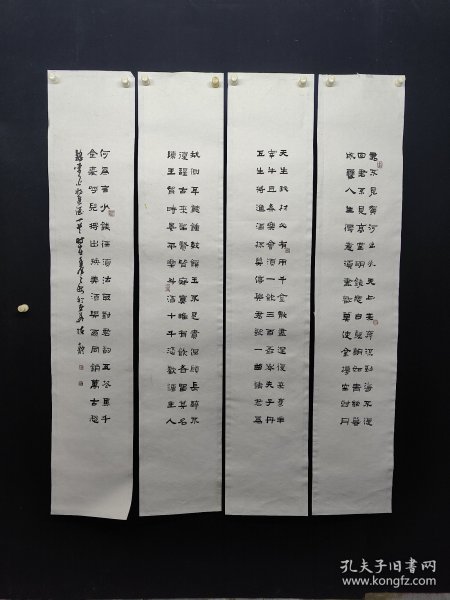 君不見黃河之水天上來奔流到海不復
回君不見高堂明鏡悲白髮朝如青絲暮
成雪人生得意須盡歡莫使金樽空對月
天生我材必有用千金散盡還復來烹羊
宰牛且為樂會須一飲三百杯岑夫子丹
丘生將進酒杯莫停與君歌一曲請君為
我側耳聽鐘鼓饌玉不足貴但願長醉不
復醒古來聖賢皆寂寞唯有飲者留其名
陳王昔時宴平樂斗酒十千恣歡謔主人
何為言少錢徑須沽取對君酌五花馬千
金裘呼兒將出換美酒與爾同銷萬古愁
孔夫子旧书网
www.kongfz.com